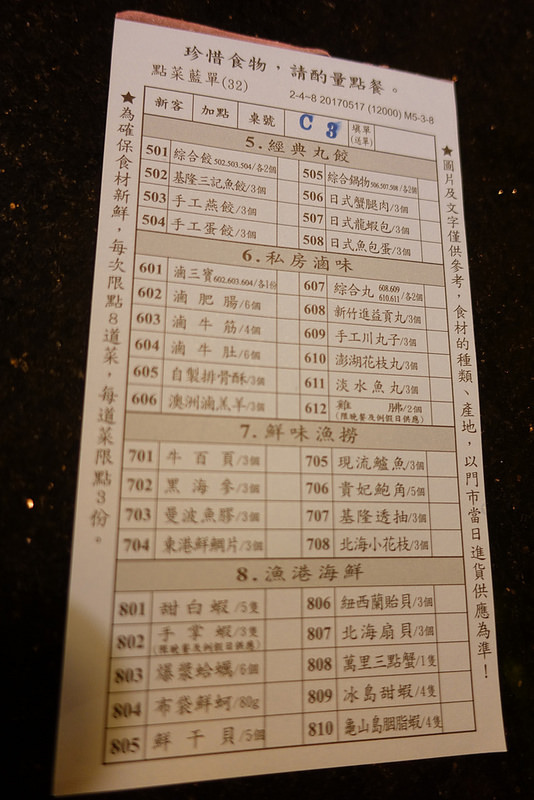 珍惜食物，請酌量點餐。
點菜藍單(32)
2-4~8 20170517 (12000) M5-3-8
新客 加點 桌號 C 3 填單(送單)
★為確保食材新鮮，每次限點8道菜，每道菜限點3份。
5.經典丸餃
501 綜合餃502.503.504/各2個
502 基隆三記魚餃/3個
503 手工燕餃/3個
504 手工蛋餃/3個
505 綜合鍋物506.507.508/各2個
506 日式蟹腿肉/3個
507 日式龍蝦包/3個
508 日式魚包蛋/3個
6.私房滷味
601 滷三寶602.603.604/各1份
602 滷肥腸/6個
603 滷牛筋/4個
604 滷牛肚/6個
605 自製排骨酥/3個
606 澳洲滷羔羊/3個
607 綜合丸608.609 610.611/各2個
608 新竹進益貢丸/3個
609 手工川丸子/3個
610 澎湖花枝丸/3個
611 淡水魚丸/3個
612 雞胇/2個
(限晚餐及例假日供應)
7.鮮味漁撈
701 牛百頁/3個
702 黑海參/3個
703 曼波魚膠/3個
704 東港鮮鯛片/3個
705 現流鱸魚/3個
706 貴妃鮑角/5個
707 基隆透抽/3個
708 北海小花枝/3個
8.漁港海鮮
801 甜白蝦/5隻
802 手掌蝦/3隻
(限晚餐及例假日供應)
803 爆漿蛤蠣/6個
804 布袋鮮蚵/80g
805 鮮干貝/5個
806 紐西蘭貽貝/3個
807 北海扇貝/3個
808 萬里三點蟹/1隻
809 冰島甜蝦/4隻
810 龜山島胭脂蝦/4隻
★圖片及文字僅供參考，食材的種類、產地，以門市當日進貨供應為準！